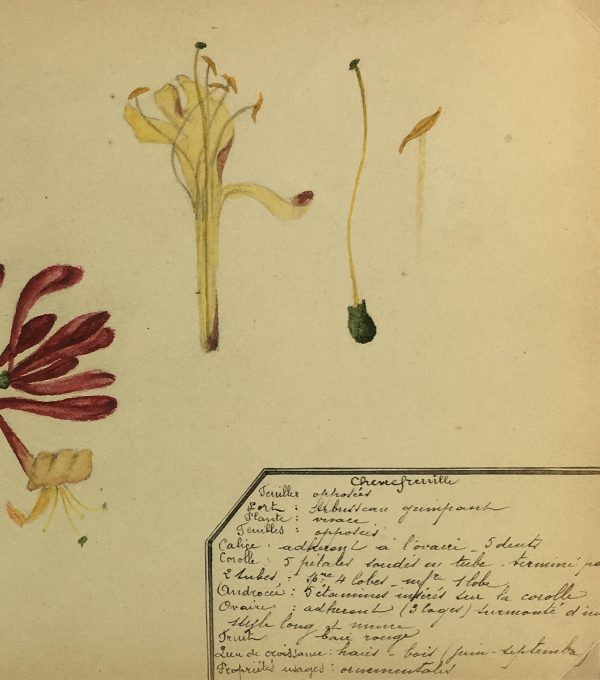 Chevrefeuille
Feuilles opposées
Port : Arbrisseau grimpant
Plante : vivace
Feuilles : opposées
Calice : adhérent à l'ovaire - 5 dents
Corolle : 5 pétales soudés en tube - terminé pa
2 lobes : 4 lobes - 1 lobe
Androcée : 5 étamines insérés sur la corolle
Ovaire : adhérent (3 loges) surmonté d'un
style long et mince
Fruit : baie rouge
Lieu de croissance : haies - bois (juin - septembre)
Propriétés usages : ornementales